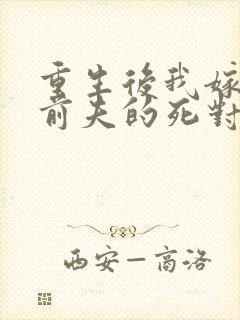 重生後我嫁
前夫的死對
西安—高洛